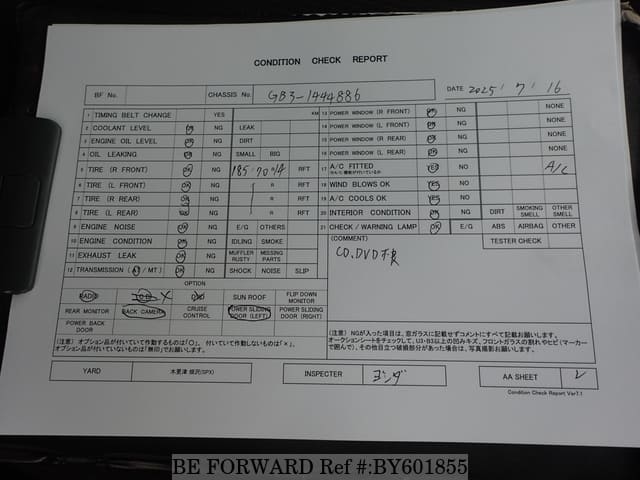 CONDITION CHECK REPORT
BF No. CHASSIS No. GB3-1444886 DATE 2025 7 16
1 TIMING BELT CHANGE YES KM
2 COOLANT LEVEL OK NG LEAK
3 ENGINE OIL LEVEL OK NG DIRT
4 OIL LEAKING OK NG SMALL BIG
5 TIRE (R FRONT) OK NG 185/70R14 RFT
6 TIRE (L FRONT) OK NG R RFT
7 TIRE (R REAR) OK NG R RFT
8 TIRE (L REAR) OK NG R RFT
9 ENGINE NOISE OK NG E/G OTHERS
10 ENGINE CONDITION OK NG IDLING SMOKE
11 EXHAUST LEAK OK NG MUFFLER RUSTY MISSING PARTS
12 TRANSMISSION (AT / MT) OK NG SHOCK NOISE SLIP
OPTION
RADIO CD × DVD SUN ROOF FLIP DOWN MONITOR
REAR MONITOR BACK CAMERA CRUISE CONTROL POWER SLIDING DOOR (LEFT) POWER SLIDING DOOR (RIGHT)
POWER BACK DOOR
(注意) オプション品が付いていて作動するものは「○」、付いていて作動しないものは「×」、
オプション品が付いていないものは「無印」でお願いします。
13 POWER WINDOW (R FRONT) OK NG NONE
14 POWER WINDOW (L FRONT) OK NG NONE
15 POWER WINDOW (R REAR) OK NG NONE
16 POWER WINDOW (L REAR) OK NG NONE
17 A/C FITTED YES NO A/C
18 WIND BLOWS OK YES NO
19 A/C COOLS OK YES NO
20 INTERIOR CONDITION OK NG DIRT SMOKING SMELL OTHER SMELL
21 CHECK / WARNING LAMP OK E/G ABS AIRBAG OTHER
(COMMENT) TESTER CHECK
CD.DVD不良
(注意) NGが入った項目は、窓ガラスに記載せずコメントにすべて記載お願いします。
オークションシートをチェックして、U3・B3以上の凹みキズ、フロントガラスの割れやヒビ(マーカー
で囲んで)、その他目立つ破損部分があった場合は、写真撮影お願いします。
YARD 木更津 畑沢(SPX) INSPECTER ヨシダ AA SHEET レ
Condition Check Report Ver7.1
BE FORWARD Ref #:BY601855